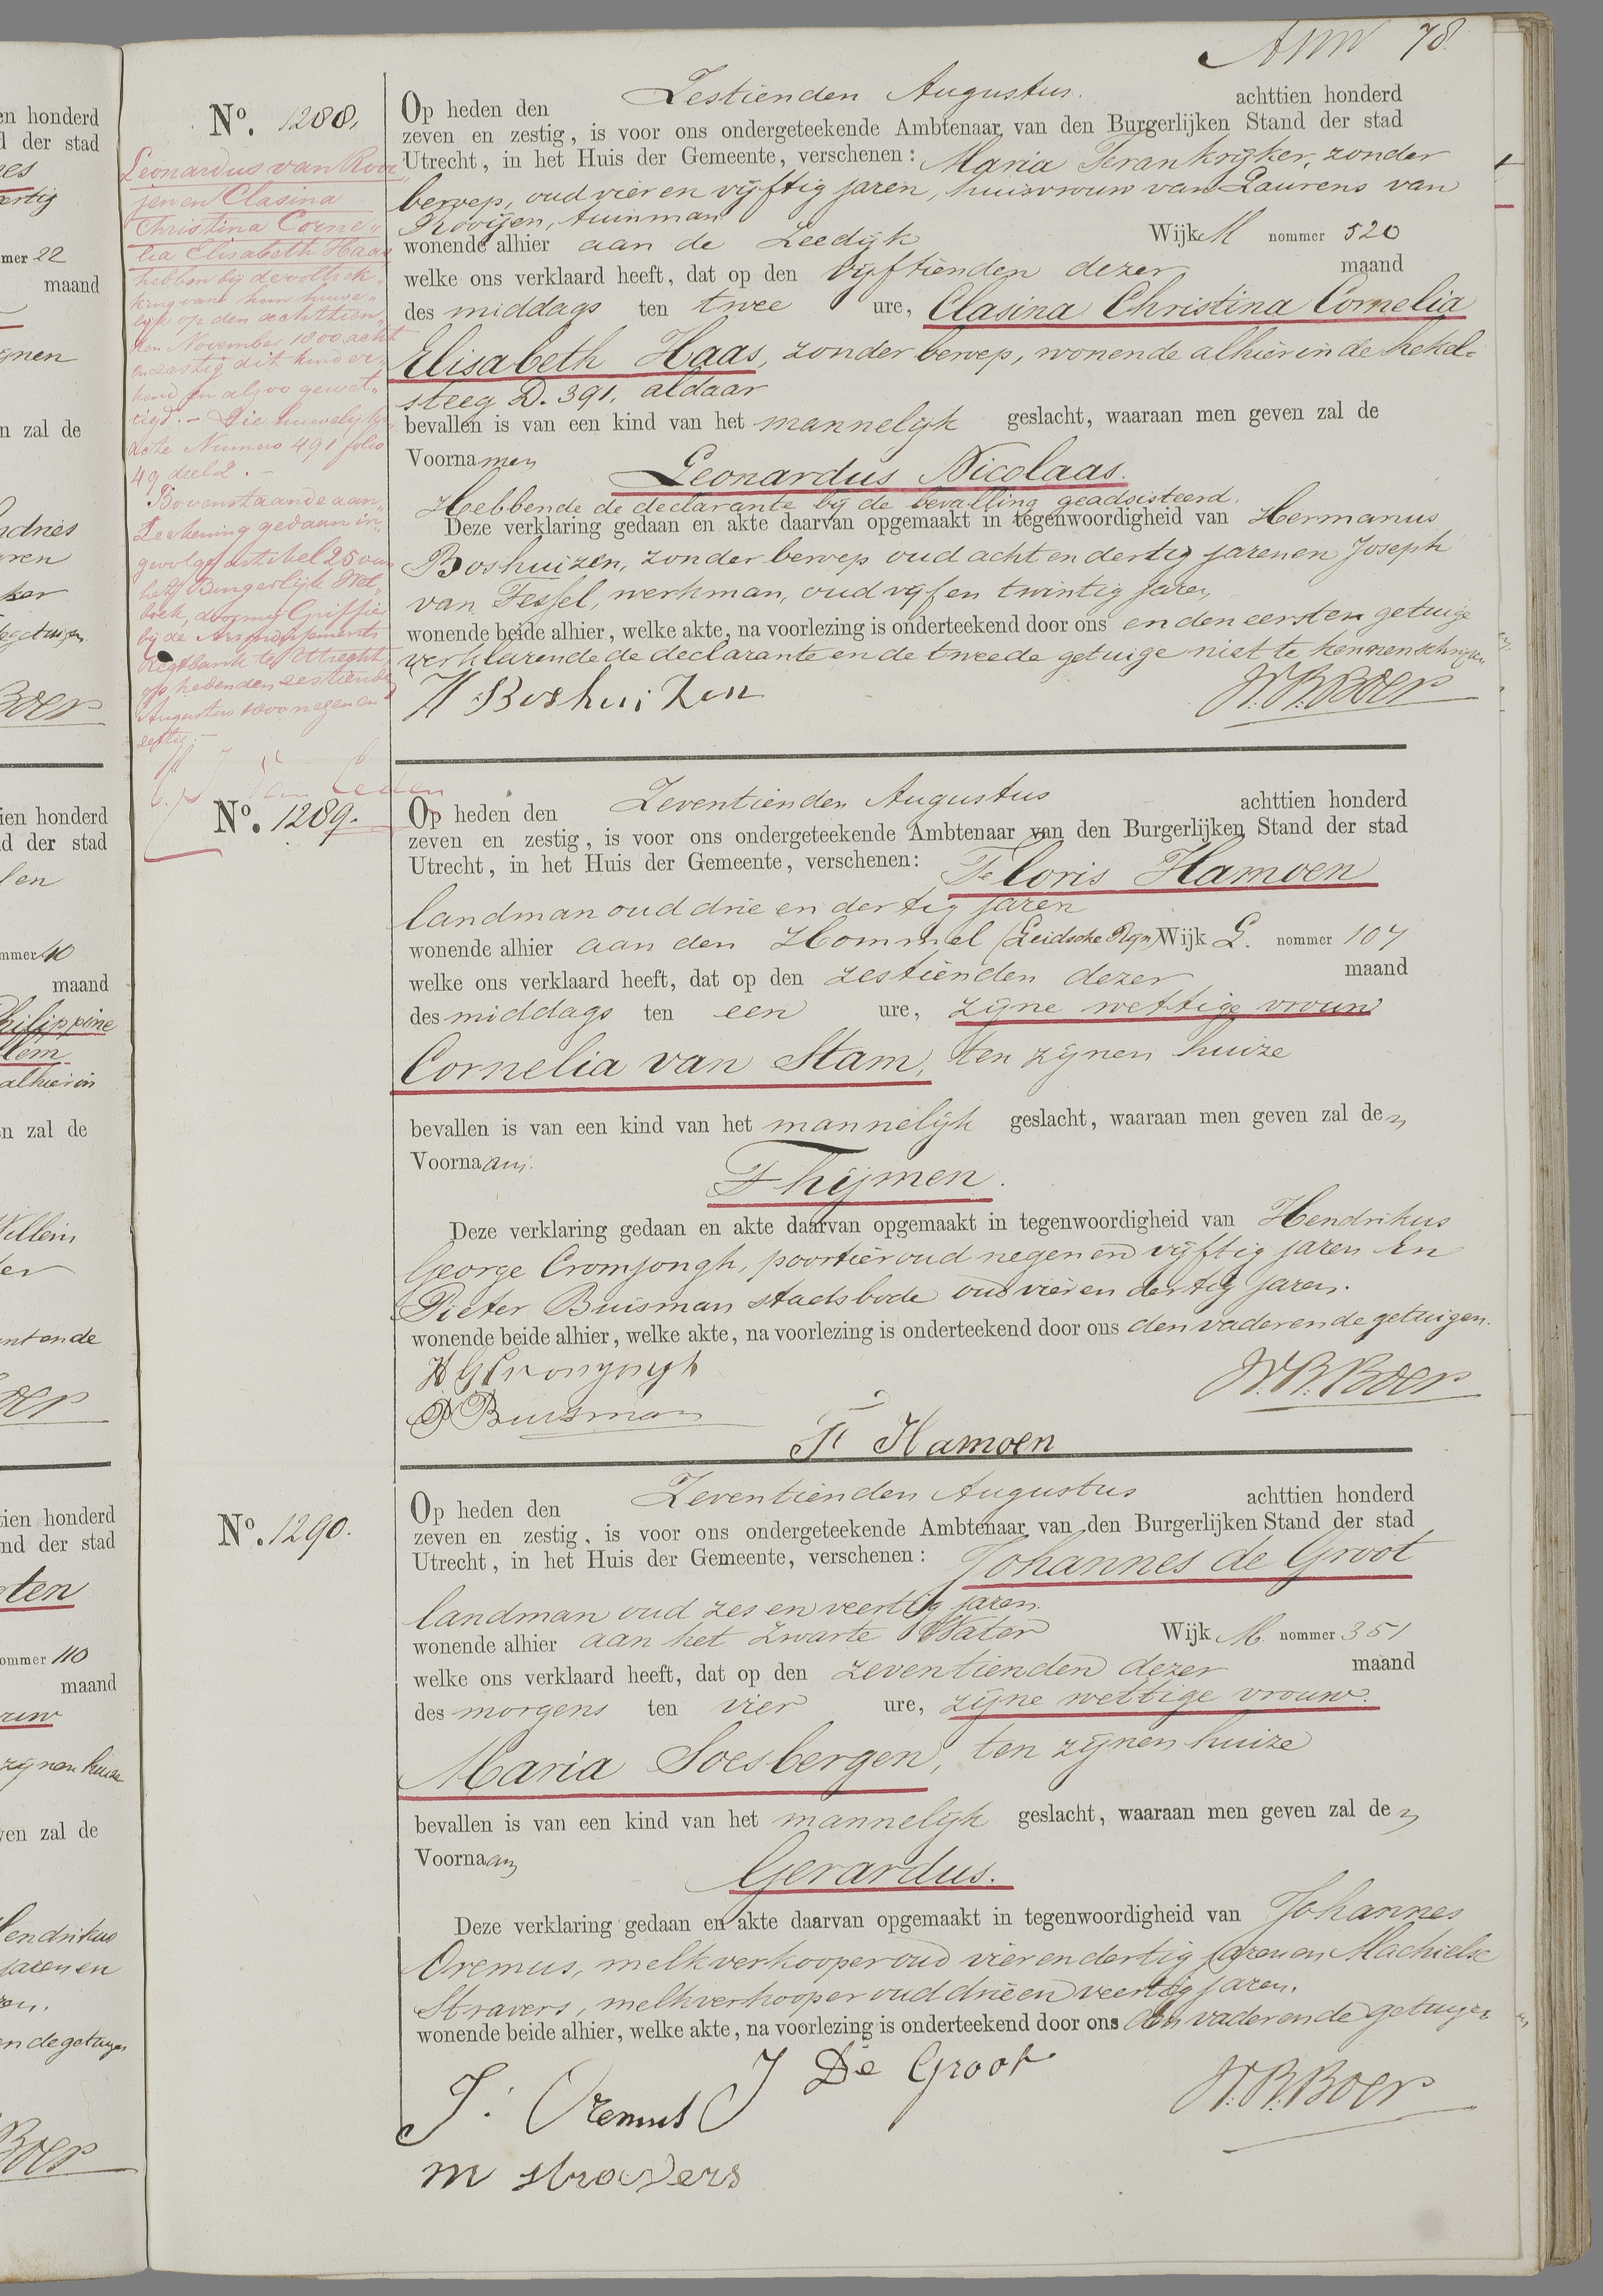 78
No. 1288.
Leonardus van Rooi
jen en Clasina
Christina Corne„
lia Elisabeth Haas
hebben bij de voltrek„
king van hun huwe„
lijk op den achttien„
den November 1800 acht
en zestig dit kind er„
kend en alzoo gewet„
tigd. – Die huwelijks
acte Numero 491 folio
49 deel 2. –
Bovenstaande aan„
teekening gedaan in„
gevolge artikel 25 van
het Burgerlijk Wet„
boek, door mij Griffier
bij de Arrondissements
Regtbank te Utrecht
op heden den zestiende
Augustus 1800 negen en
zestig. –
Op heden den Zestienden Augustus. achttien honderd
zeven en zestig, is voor ons ondergeteekende Ambtenaar van den Burgerlijken Stand der stad
Utrecht, in het Huis der Gemeente, verschenen: Maria Terankrijker, zonder
beroep, oud vier en vijftig jaren, huisvrouw van Laurens van
Rooijen, tuinman
wonende alhier aan de Zeedijk Wijk M nommer 520
welke ons verklaard heeft, dat op den vijftienden dezer maand
des middags ten twee ure, Clasina Christina Cornelia
Elisabeth Haas, zonder beroep, wonende alhier in de Hekel=
steeg D. 391, aldaar
bevallen is van een kind van het mannelijk geslacht, waaraan men geven zal de
Voornamen Leonardus Nicolaas.
Hebbende de declarante bij de bevalling geadsisteerd.
Deze verklaring gedaan en akte daarvan opgemaakt in tegenwoordigheid van Hermanus
Boshuizen, zonder beroep oud acht en dertig jaren en Joseph
van Tessel, werkman, oud vijf en twintig jaren
wonende beide alhier, welke akte, na voorlezing is onderteekend door ons en den eersten getuige
verklarende de declarante en de tweede getuige niet te kennen schrijven
H Boshuizen W. B. Boer
No. 1289.
Op heden den Zeventienden Augustus achttien honderd
zeven en zestig, is voor ons ondergeteekende Ambtenaar van den Burgerlijken Stand der stad
Utrecht, in het Huis der Gemeente, verschenen: Floris Hamoen
landman oud drie en dertig jaren
wonende alhier aan den Hommel (Leidsche Rijn) Wijk L. nommer 107
welke ons verklaard heeft, dat op den zestienden dezer maand
des middags ten een ure, zijne wettige vrouw
Cornelia van Stam, ten zijnen huize
bevallen is van een kind van het mannelijk geslacht, waaraan men geven zal den
Voornaam. Thijmen.
Deze verklaring gedaan en akte daarvan opgemaakt in tegenwoordigheid van Hendrikus
George Cromjongh, poortier oud negen en vijftig jaren en
Pieter Buisman stadsbode oud vier en dertig jaren.
wonende beide alhier, welke akte, na voorlezing is onderteekend door ons den vader en de getuigen.
H G Cromjongh W. B. Boer
P Buisman
F Hamoen
No. 1290.
Op heden den Zeventienden Augustus achttien honderd
zeven en zestig, is voor ons ondergeteekende Ambtenaar van den Burgerlijken Stand der stad
Utrecht, in het Huis der Gemeente, verschenen: Johannes de Groot
landman oud zes en veertig jaren.
wonende alhier aan het Zwarte Water Wijk M. nommer 351
welke ons verklaard heeft, dat op den zeventienden dezer maand
des morgens ten vier ure, zijne wettige vrouw.
Maria Soesbergen, ten zijnen huize
bevallen is van een kind van het mannelijk geslacht, waaraan men geven zal den
Voornaam Gerardus.
Deze verklaring gedaan en akte daarvan opgemaakt in tegenwoordigheid van Johannes
Oremus, melkverkooper oud vier en dertig jaren en Machielse
Stravers, melkverkooper oud drie en veertig jaren.
wonende beide alhier, welke akte, na voorlezing is onderteekend door ons den vader en de getuigen
J. Oremus J De Groot W. B. Boer
m stravers